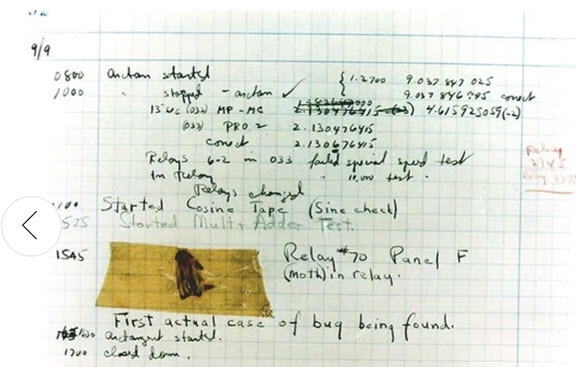 9/9
0800 antan started { 1.2700 9.037 847 025
1000 " stopped - antan ✓ 9.037 846 995 correct
13"uc (032) MP - MC 2.130476415 (-3) 4.615925059(-2)
(033) PRO 2 2.130476415
correct 2.130676415
Relays 6-2 in 033 failed special speed test
In relay " 10.000 test .
Relays changed
Relay
2145
Relay 3370
1100 Started Cosine Tape (Sine check)
1525 Started Mult + Adder Test.
1545 Relay #70 Panel F
(moth) in relay.
First actual case of bug being found.
1630 antangent started.
1700 closed down.